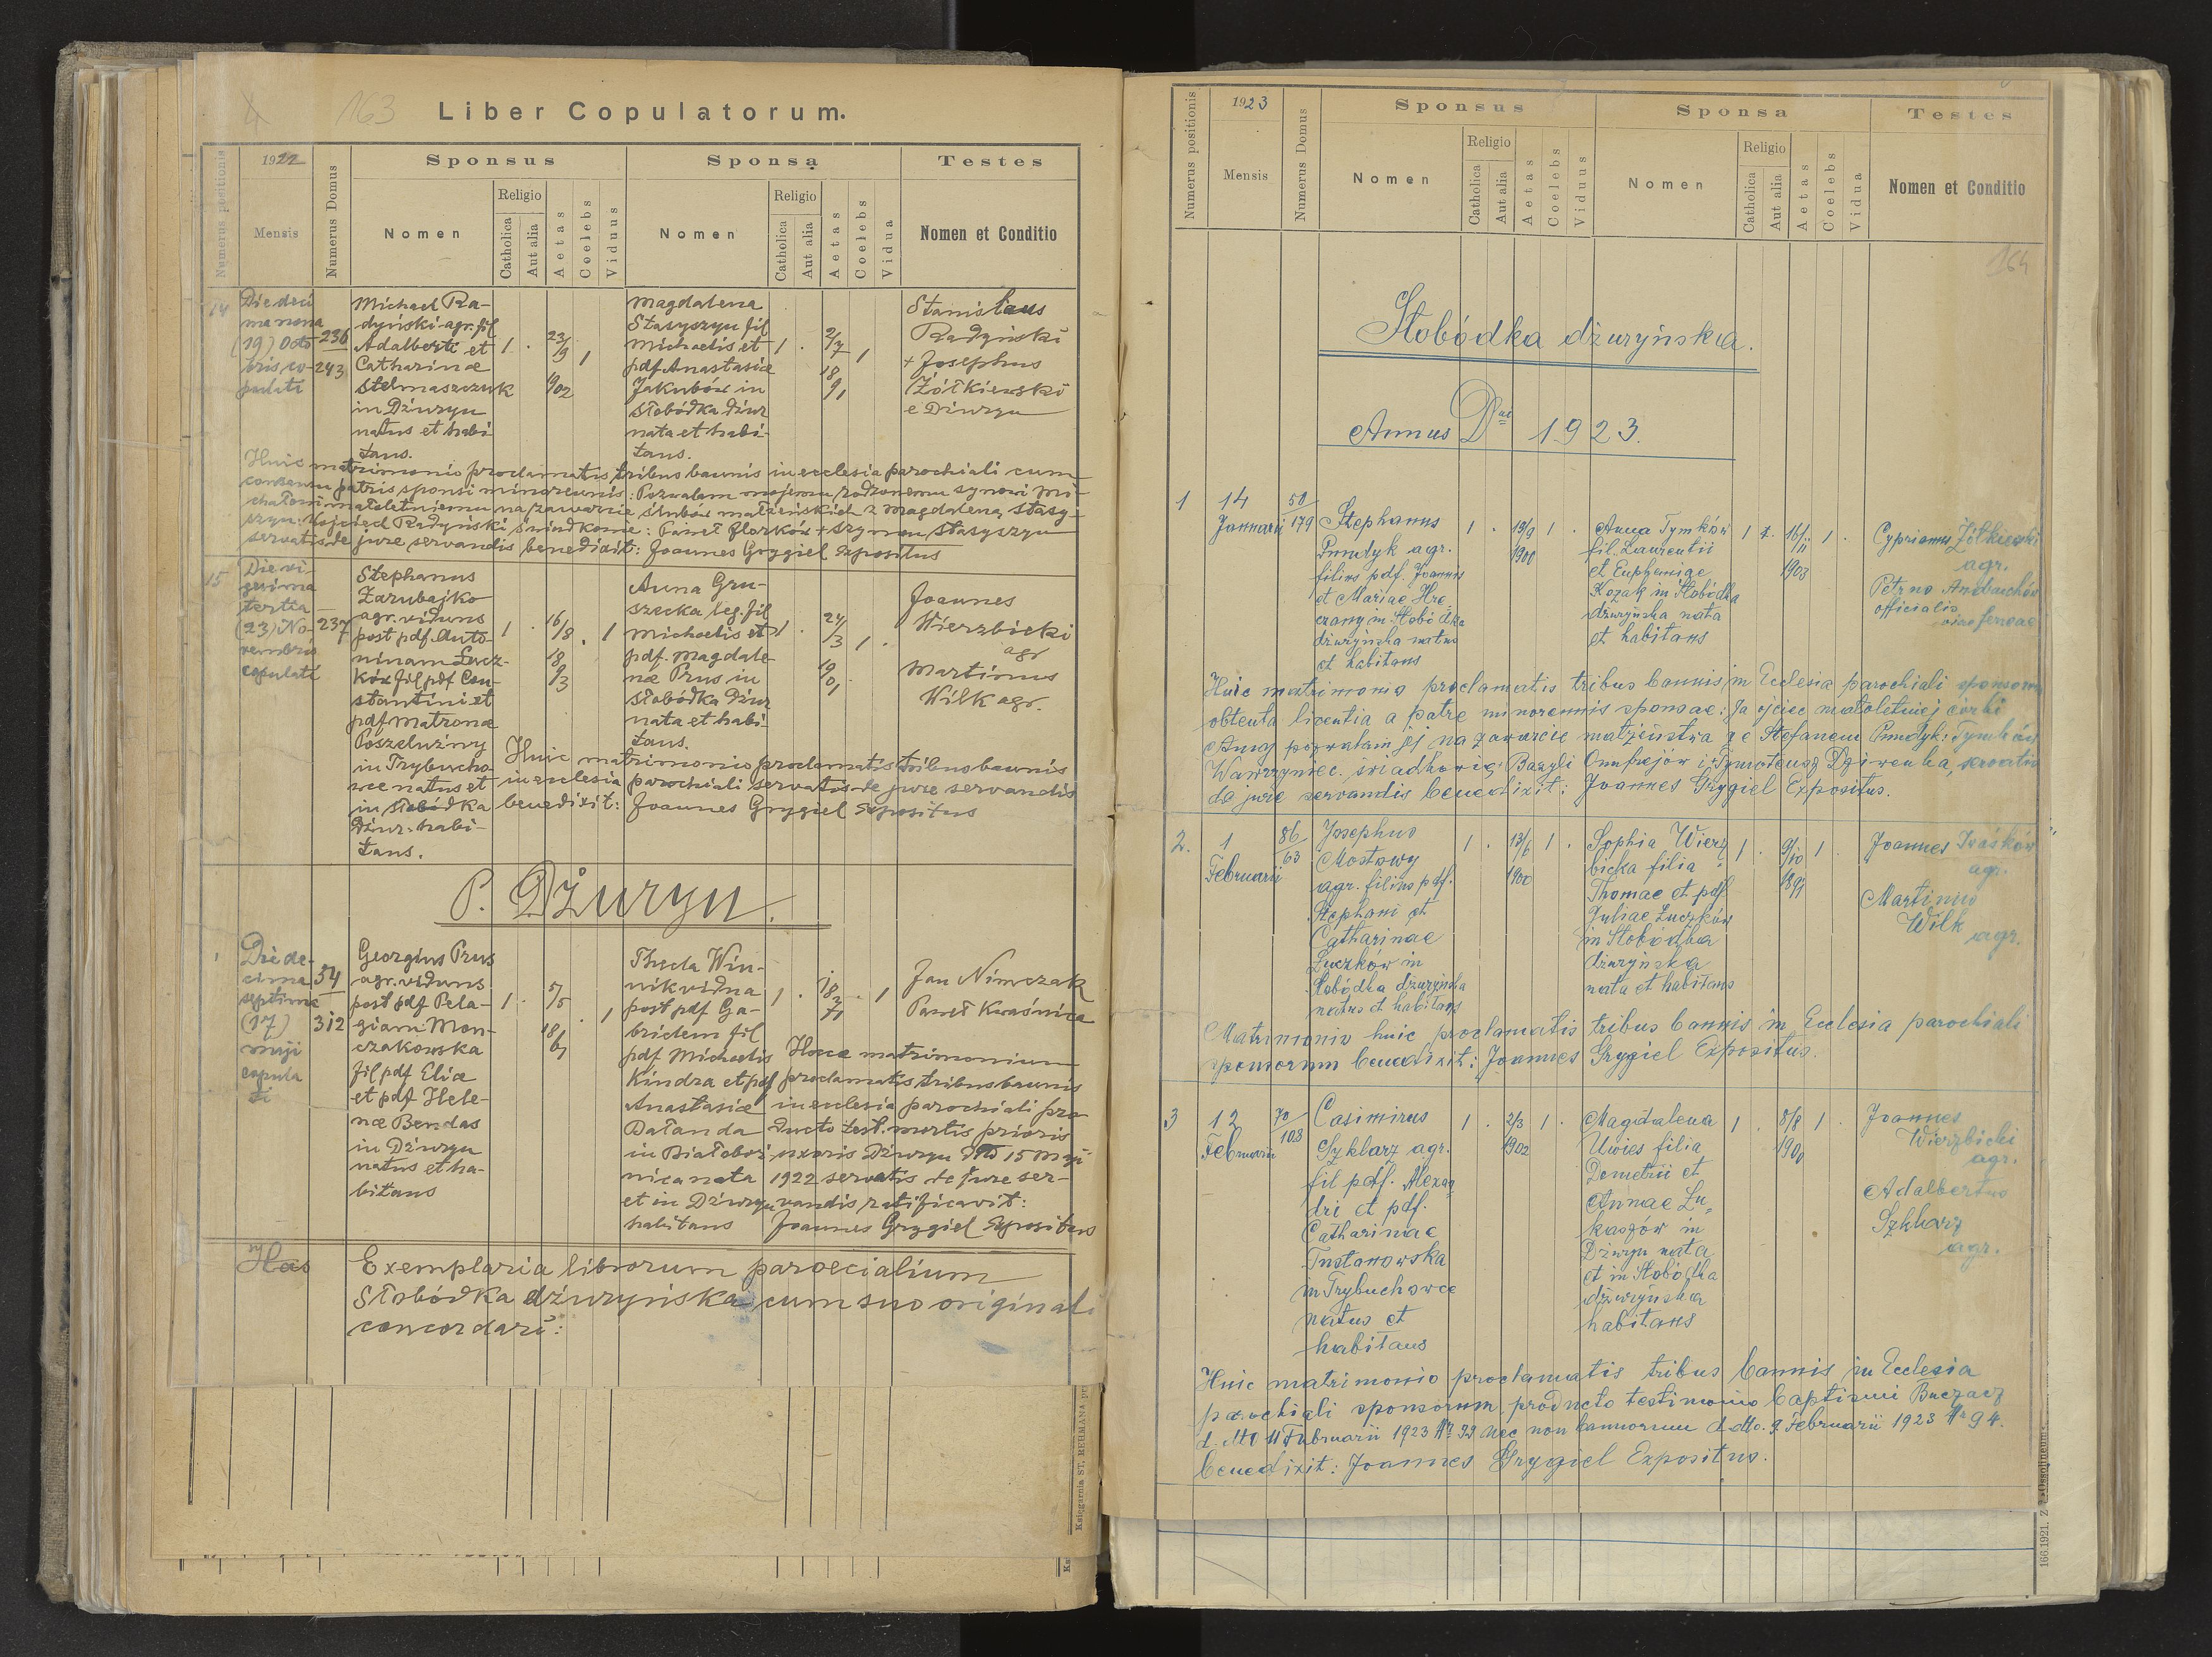 163
Liber Copulatorum.
Numerus positionis
1922
Mensis
Numerus Domus
Sponsus
Nomen
Religio
Catholica
Aut alia
Aetas
Coelebs
Viduus
Sponsa
Nomen
Religio
Catholica
Aut alia
Aetas
Coelebs
Vidua
Testes
Nomen et Conditio
14
Die deci
ma nona
(19) Octo
bris co-
pulati
236
243
Michael Ra-
dyński-agr. fil
Adalberti et
Catharinæ
Stelmaszczuk
in Dżuryn
natus et habi
tans.
1 . 23/9 1
1902
Magdalena
Stasyszyn fil
Michaelis et
pdf Anastasiæ
Jakubów in
Słobódka Dżur
nata et habi-
tans.
1 . 2/7 1
18
91
Stanislaus
Radyński
+ Josephus
Żółkiewski
e Dżuryn
Huic matrimonio proclamatis tribus bannis in ecclesia parochiali cum
consensu patris sponsi minorennis: Pozwalam mojemu rodzonemu synowi Mi-
chałowi małoletniemu na zawarcie ślubów małżeńskich z Magdaleną Stasy-
szyn. Wojciech Radyński świadkowie: Paweł Florków + Szymon Stasyszyn
servatis de jure servandis benedixit: Joannes Grygiel Expositus
15
Die vi-
gesima
tertia
(23) No-
vembris
copulati
237
Stephanus
Zarubajko
agr. viduus
post pdf. Anto-
ninam Łucz-
ków fil pdf Con-
stantini et
pdf Matronæ
Poszeluźny
in Trybucho-
wce natus et
in Słobódka
Dżur. habi-
tans.
1 . 16/8 . 1
18
93
Anna Gru-
szecka leg. fil
Michaelis et
pdf. Magdale-
næ Prus in
Słobódka Dżur
nata et habi-
tans.
1 . 24/3 1 .
19
01
Joannes
Wierzbicki
agr
Martinus
Wilk agr.
Huic matrimonio proclamatis tribus bannis
in ecclesia parochiali servatis de jure servandis
benedixit: Joannes Grygiel Expositus
P. Dżuryn.
1
Die de-
cima
septima
(17)
maji
copula
ti
54
312
Georgius Prus
agr. viduus
post pdf Pela-
giam Mon-
czakowska
fil pdf Eliæ
et pdf Hele-
næ Bendas
in Dżuryn
natus et ha-
bitans
1 . 5/5 . 1
18
67
Thecla Win-
nik vidua
post pdf Ga-
brielem fil
pdf Michaelis
Kindra et pdf
Anastasiæ
Bałanda
in Białoboż-
nica nata
et in Dżuryn
habitans
1 . 18 . 1
71
Jan Nimczak
Paweł Kwaśnica
Hocce matrimonium
proclamatis tribus bannis
in ecclesia parochiali pro
ducto test. mortis prioris
uxoris Dżuryn dtto 15 Maji
1922 servatis de jure ser-
vandis ratificavit:
Joannes Grygiel Expositus
Has
Exemplaria librorum paroecialium
Słobódka dżuryńska cum suo originali
concordari:
Księgarnia ST. MERMANA
Numerus positionis
1923
Mensis
Numerus Domus
Sponsus
Nomen
Religio
Catholica
Aut alia
Aetas
Coelebs
Viduus
Sponsa
Nomen
Religio
Catholica
Aut alia
Aetas
Coelebs
Vidua
Testes
Nomen et Conditio
164
Słobódka dżuryńska.
Annus Dni 1923.
1
14
Januarii
50
179
Stephanus
Prundyk agr.
filius pdf. Joannis
et Mariae Hre-
czany in Słobódka
dżuryńska natus
et habitans
1 . 19/9 1 .
1900
Anna Tymków
fil. Laurentii
et Euphemiae
Kozak in Słobódka
dżuryńska nata
et habitans
1 . 16/11 1 .
1903
Cyprianus Żółkiewski
agr.
Petrus Andruchów
officialis
viae ferreae
Huic matrimonio proclamatis tribus bannis in Ecclesia parochiali sponsorum
obtenta licentia a patre minorennis sponsae: Ja ojciec małoletniej córki
Anny pozwalam jej na zawarcie małżeństwa ze Stefanem Prundyk: Tymków
Wawrzyniec. świadkowie: Bazyli Onufrejów i Tymoteusz Dziwenka, servatis
de jure servandis benedixit: Joannes Grygiel Expositus.
2.
1
Februarii
86
63
Josephus
Mostowy
agr. filius pdf.
Stephani et
Catharinae
Łuczków in
Słobódka dżuryńska
natus et habitans
1 . 13/6 1 .
1900
Sophia Wierz-
bicka filia
Thomae et pdf.
Juliae Łuczków
in Słobódka
dżuryńska
nata et habitans
1 . 9/10 1 .
1899
Joannes Iwaśków
agr.
Martinus
Wilk
agr.
Matrimonio huic proclamatis tribus bannis in Ecclesia parochiali
sponsorum benedixit: Joannes Grygiel Expositus.
3
12
Februarii
70
108
Casimirus
Szklarz agr.
fil pdf. Alexan-
dri et pdf.
Catharinae
Tustanowska
in Trybuchowce
natus et
habitans
1 . 2/3 1 .
1902
Magdalena
Uwies filia
Demetrii et
Annae Łu-
kaszów in
Dżuryn nata
et in Słobódka
dżuryńska
habitans
1 . 8/8 1 .
1900
Joannes
Wierzbicki
agr.
Adalbertus
Szklarz
agr.
Huic matrimonio proclamatis tribus bannis in Ecclesia
parochiali sponsorum producto testimonio baptismi Buczacz
d. dtto 11 Februarii 1923 Nr. 99 nec non bannorum d. dtto. 9 Februarii 1923 Nr 94.
benedixit: Joannes Grygiel Expositus.
166.1921. Z